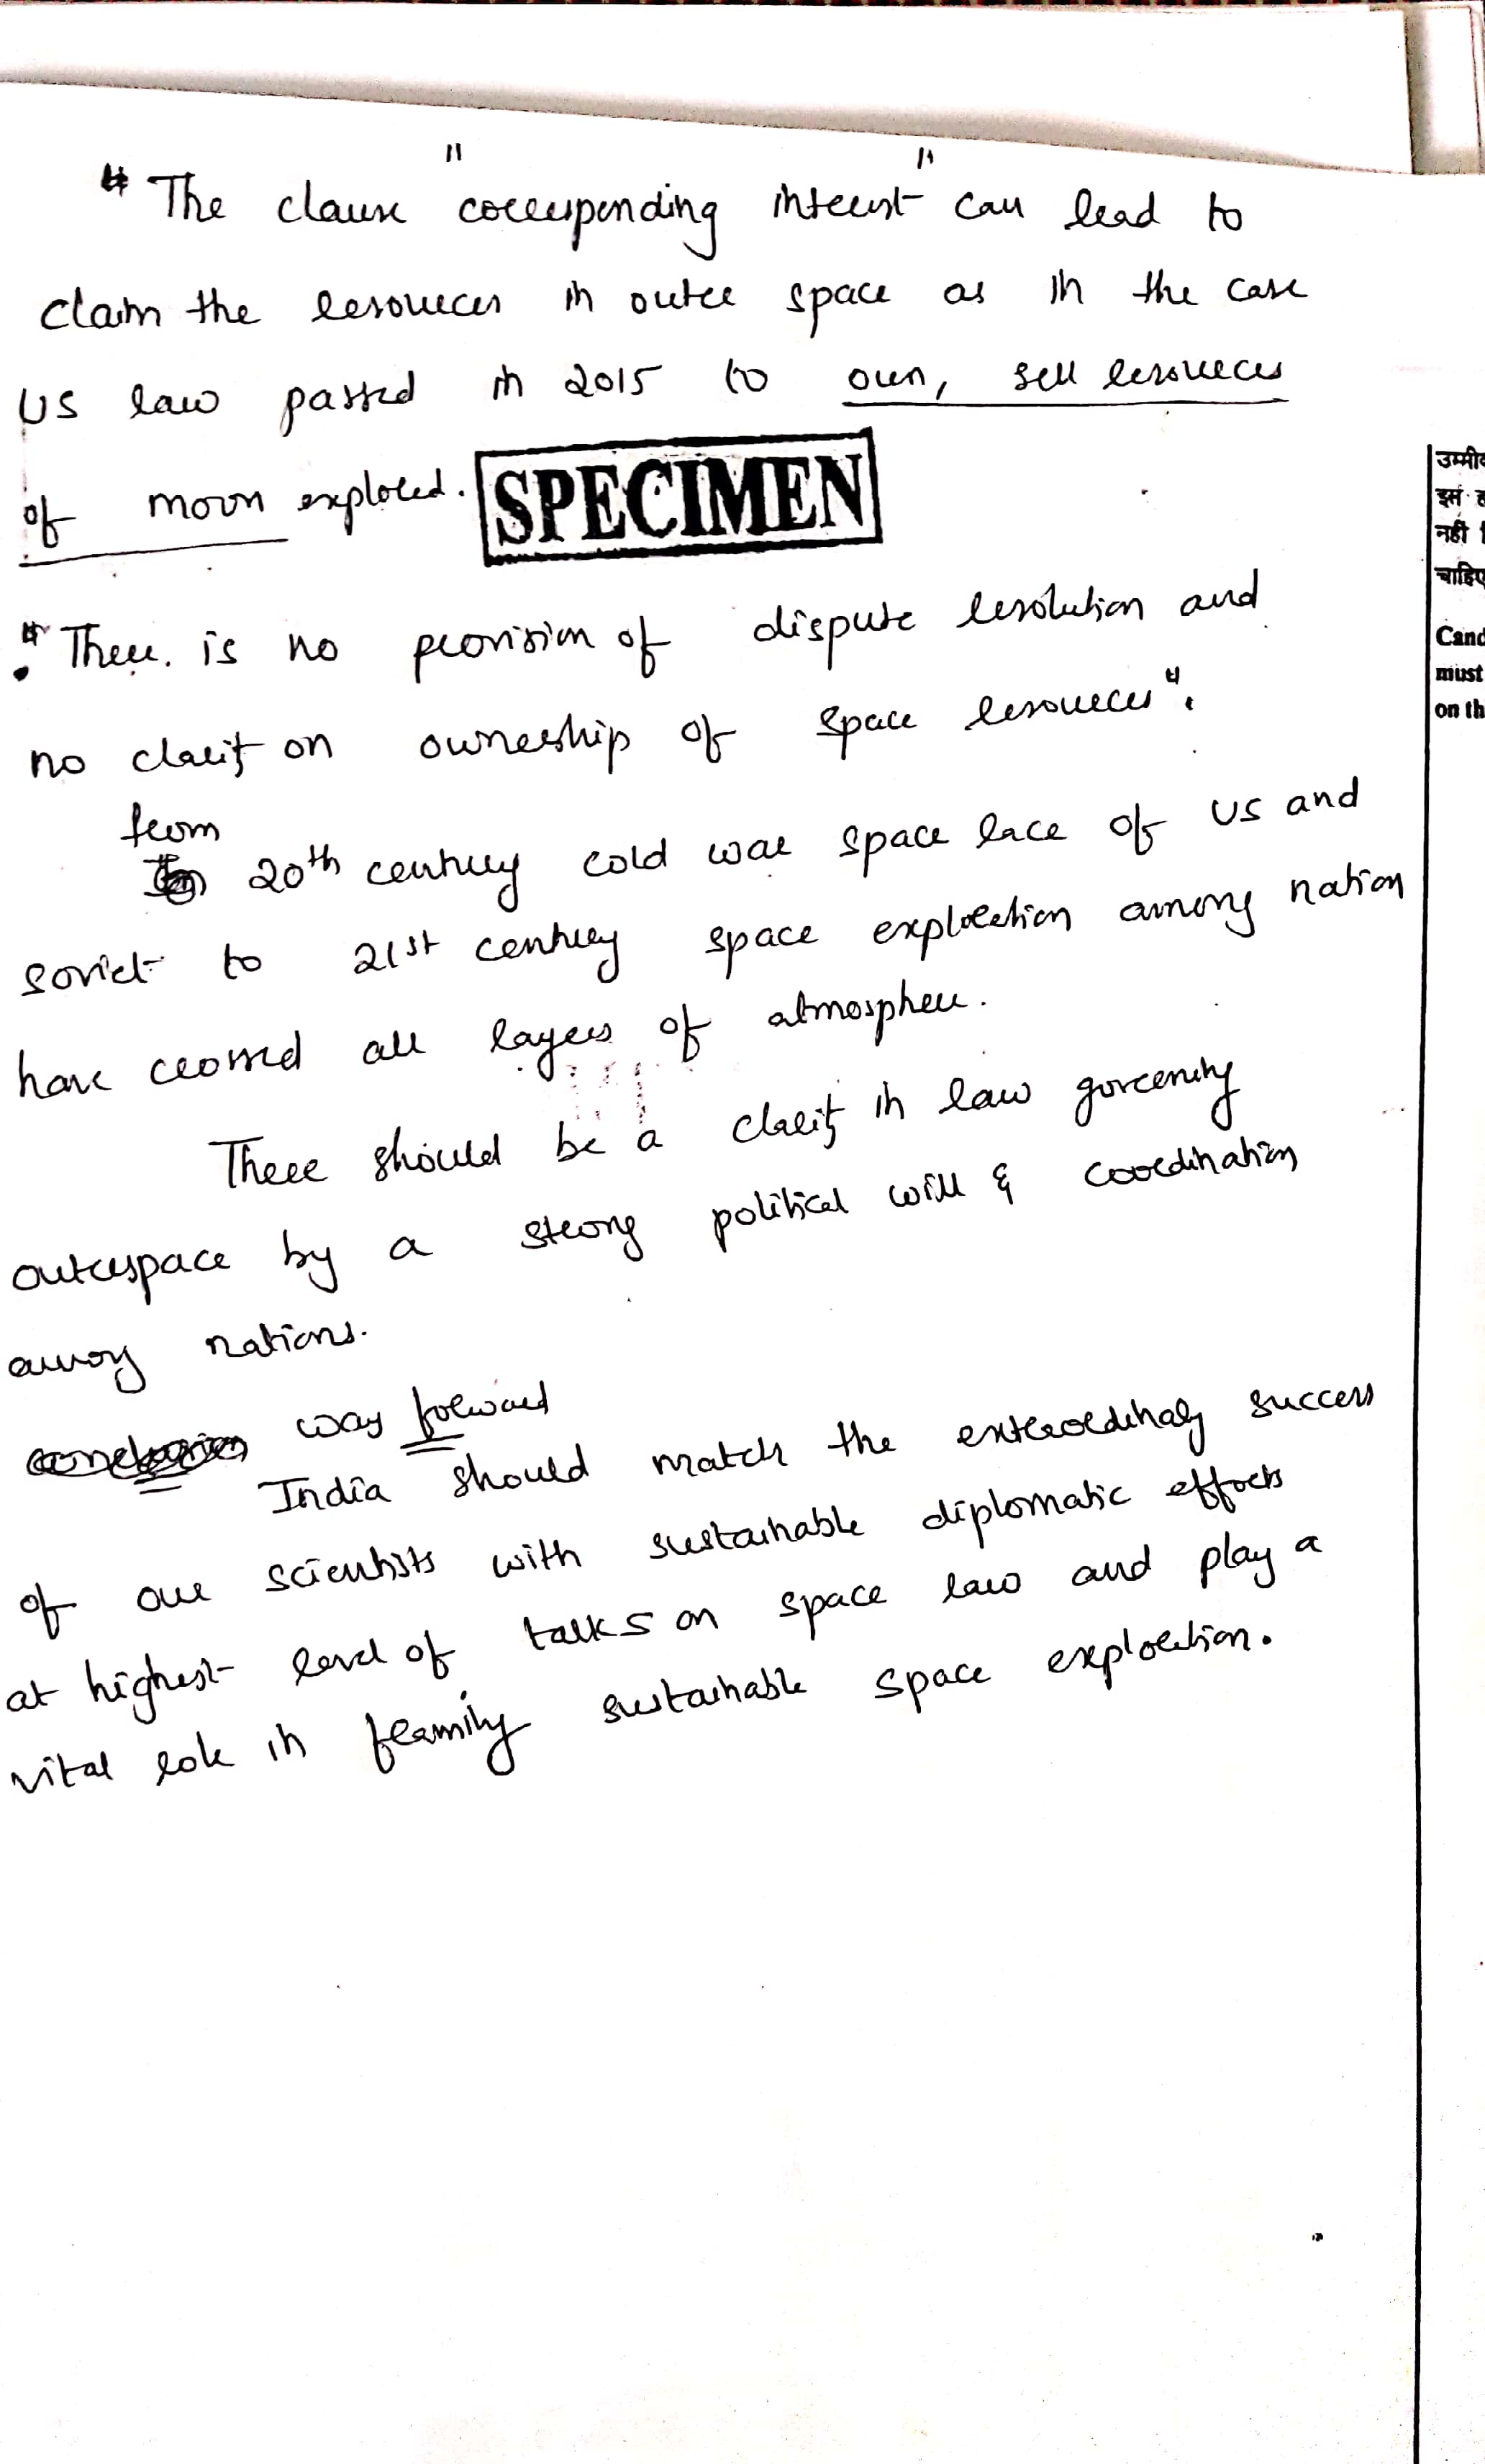 # The clause "corresponding interest" can lead to
claim the resources in outer space as in the case
US law passed in 2015 to own, sell resources
of moon explored.
SPECIMEN
# There is no provision of dispute resolution and
no clarity on ownership of space resources".
from
20th century cold war space race of US and
soviet to 21st century space exploration among nation
have crossed all layers of atmosphere.
There should be a clarity in law governing
outerspace by a strong political will & coordination
among nations.
way forward
India should match the extraordinary success
of our scientists with sustainable diplomatic efforts
at highest level of talks on space law and play a
vital role in framing sustainable space exploration.
उम्मीद
इस ह
नहीं
चाहिए
Cand
must
on th